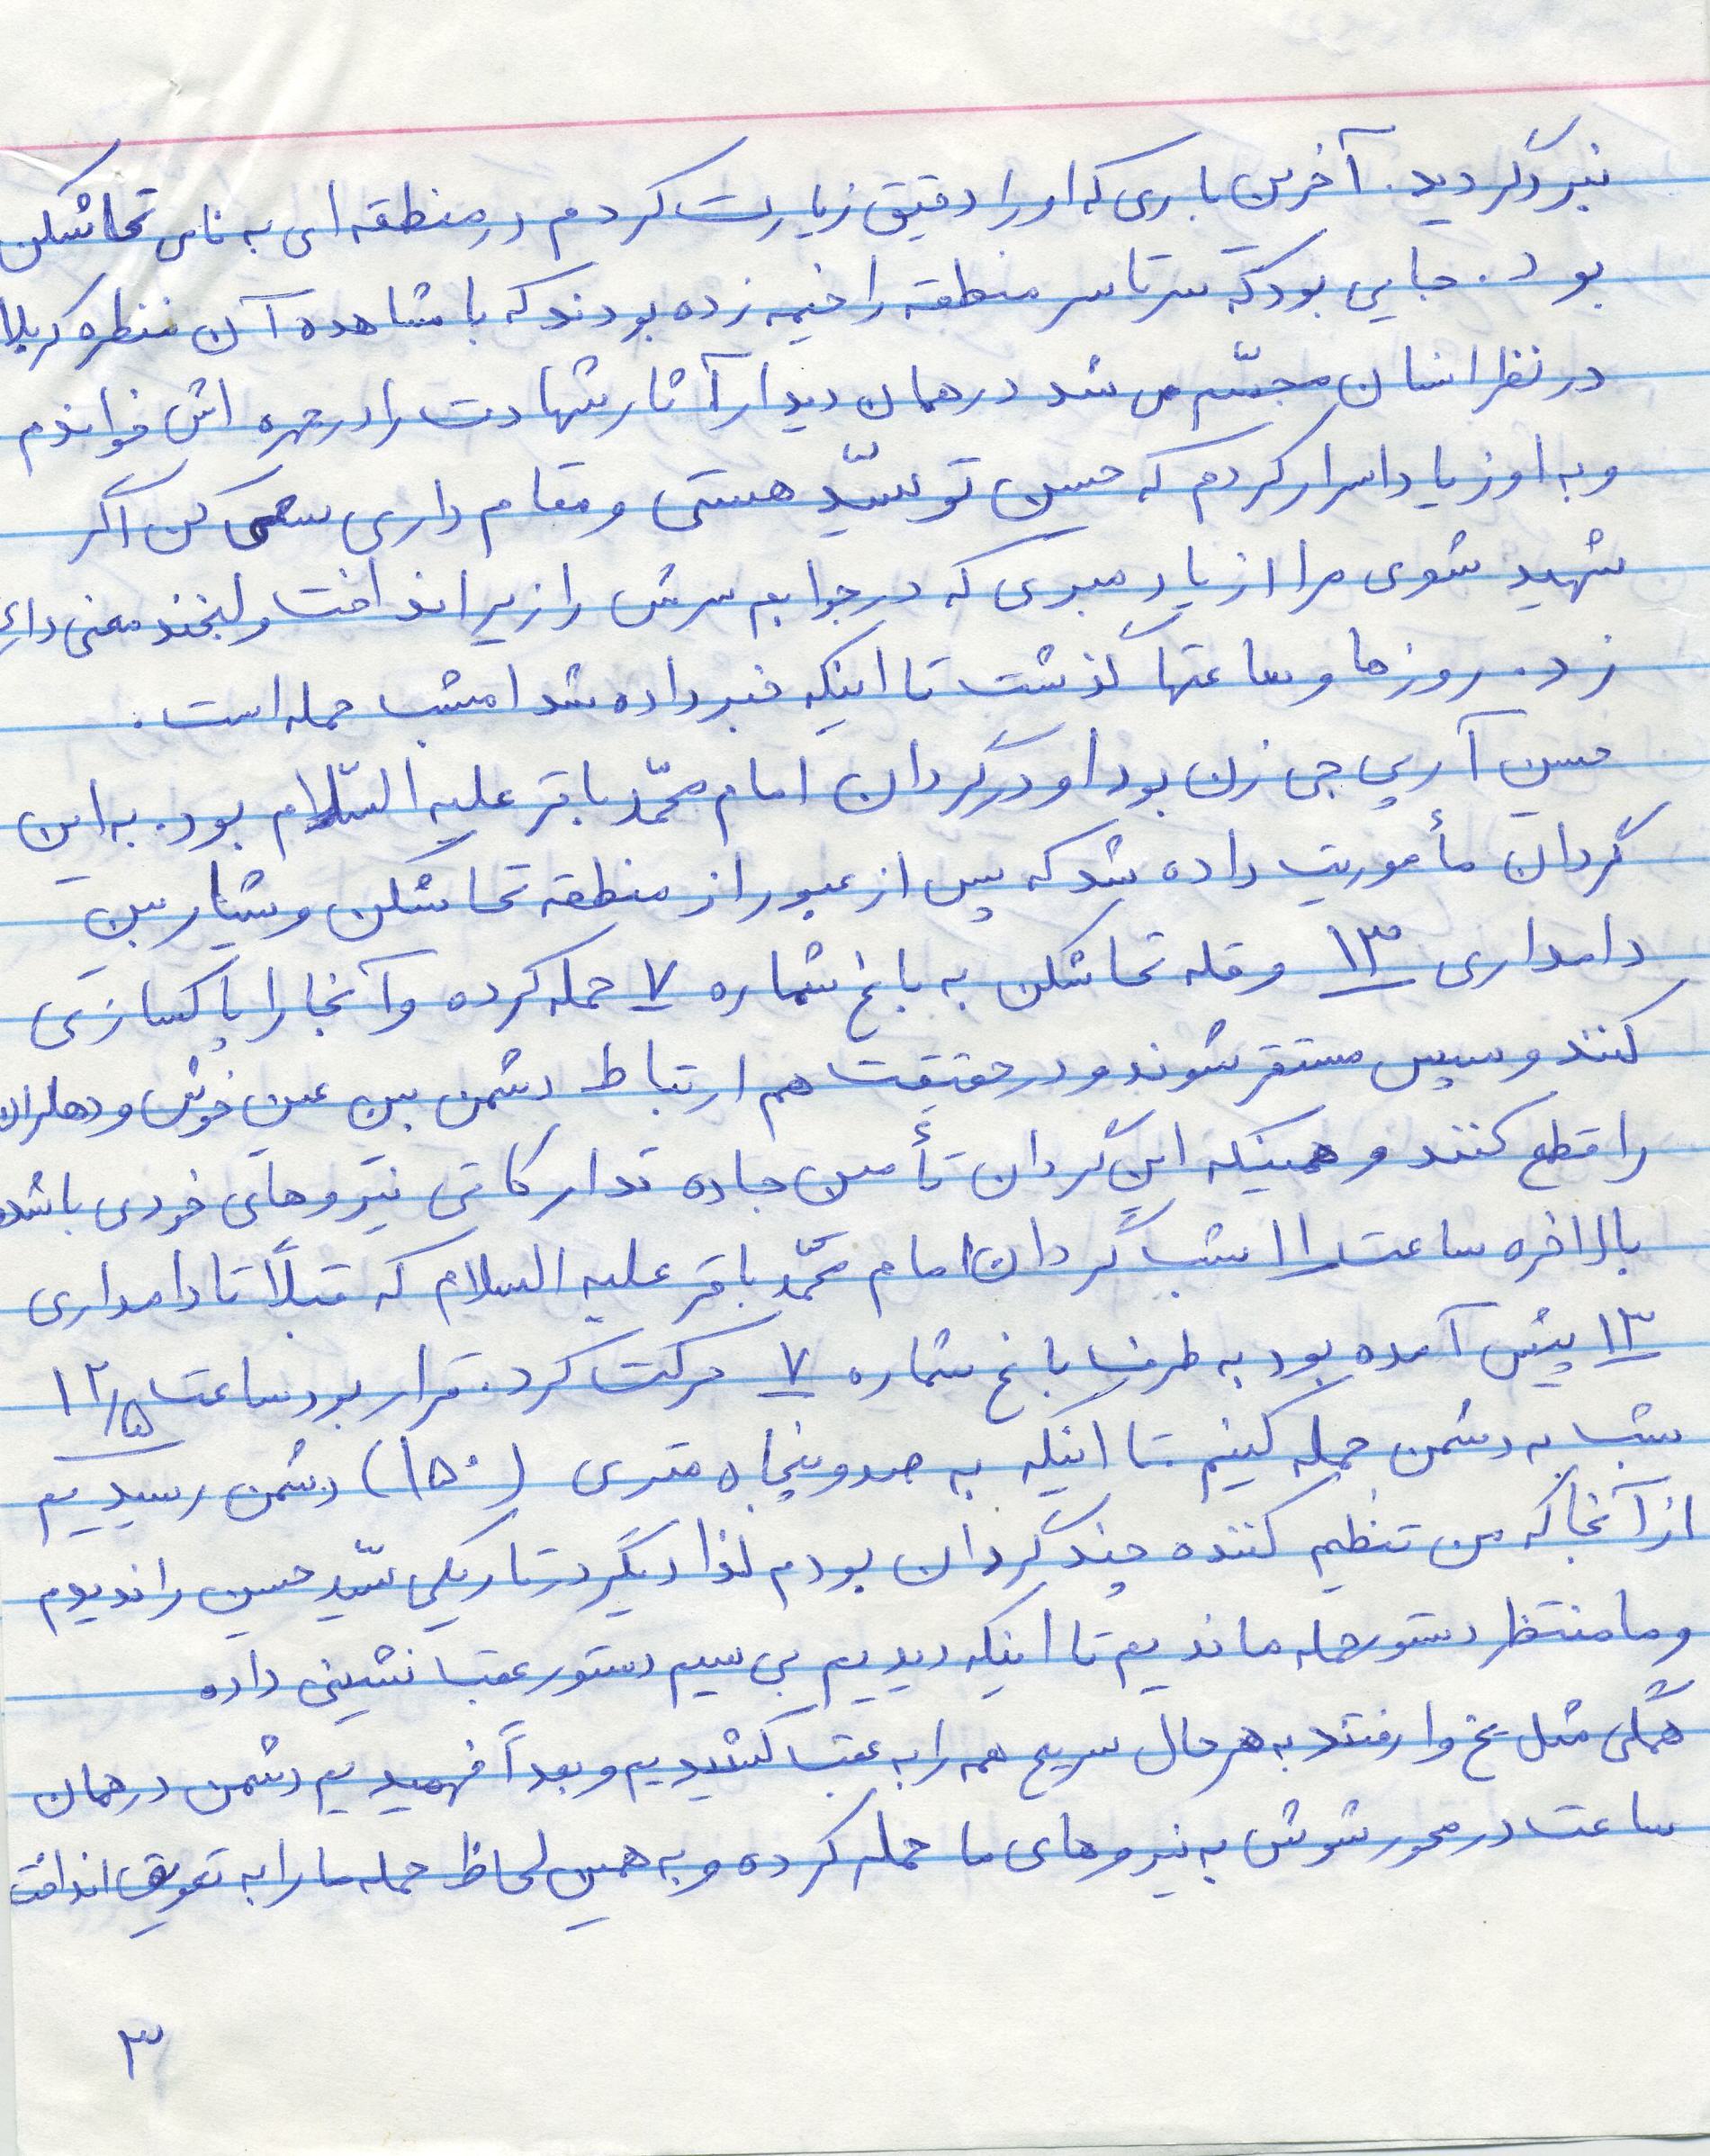 نبرد گردید. آخرین باری که او را دقیق زیارت کردم در منطقه ای به نام تخاشکن
بود. جایی بود که سرتاسر منطقه را خیمه زده بودند که با مشاهده آن منظره کربلا
در نظر انسان مجسّم می شد در همان دیدار آثار شهادت را در چهره اش خواندم
و به او زیاد اسرار کردم که حسین تو سیّد هستی و مقام داری سعی کن اگر
شهید شوی مرا از یاد مبری که در جوابم سرش را زیر انداخت و لبخند معنی داری
زد. روزها و ساعتها گذشت تا اینکه خبر داده شد امشب حمله است.
حسین آرپی جی زن بود او در گردان امام محمّد باقر علیه السّلام بود. به این
گردان مأموریت داده شد که پس از عبور از منطقه تخاشکن و شیار بین
دامداری ۱۳ و قله تخاشکن به باغ شماره ۷ حمله کرده و آنجا را پاکسازی
کنند و سپس مستقر شوند و در حقیقت هم ارتباط دشمن بین عین خوش و دهلران
را قطع کنند و همینکه این گردان تأمین جاده تدارکاتی نیروهای خودی باشد
بالاخره ساعت ۱۱ شب گردان امام محمّد باقر علیه السلام که قبلاً تا دامداری
۱۳ پیش آمده بود به طرف باغ شماره ۷ حرکت کرد. قرار بود ساعت ۱۲/۵
شب به دشمن حمله کنیم تا اینکه به صدوپنجاه متری (۱۵۰) دشمن رسیدیم
از آنجا که من تنظیم کننده چند گردان بودم لذا دیگر در تاریکی سیّد حسین را ندیدم
و ما منتظر دستور حمله ماندیم تا اینکه دیدیم بی سیم دستور عقب نشینی داده
همگی مثل یخ وا رفتند به هر حال سریع همه را به عقب کشیدیم و بعداً فهمیدیم دشمن در همان
ساعت در محور شوش به نیروهای ما حمله کرده و به همین لحاظ حمله ما را به تعویق انداخت
۳